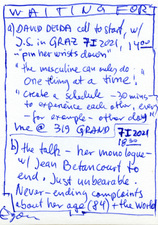 WAITING FOR:
a) DAVID DEIDA call to start, w/
J.S. in GRAZ 7 I 2021, 14:00
"pin her wrists down"
"the masculine can only do
one thing at a time!
"create a schedule - 30 mins
to experience each other, even
for example - other
me @ 319 GRAND 7 I 2021
18:50
b) the talk - her monologue -
w/ Jean Betancourt to
end. Just unbearable.
Never-ending complaints
about her age (84) + the world